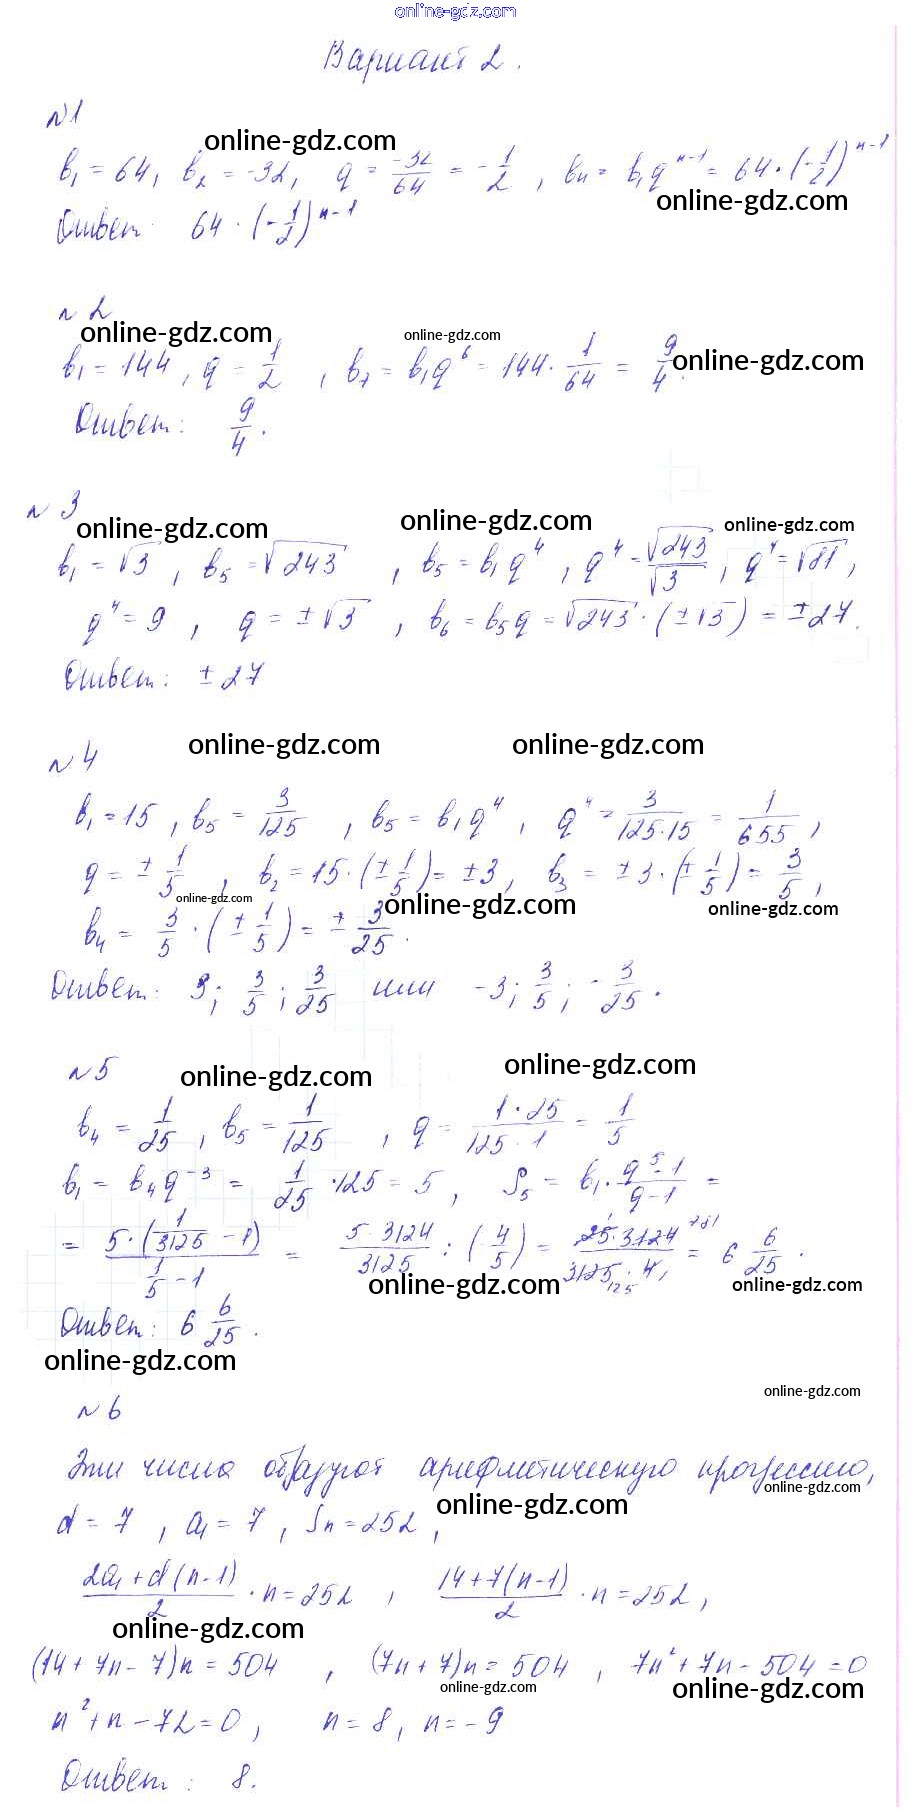 online-gdz.com
Вариант 2.
№1
online-gdz.com
b₁ = 64, b₂ = -32, q = -32/64 = -1/2, bn = b₁qⁿ⁻¹ = 64·(-1/2)ⁿ⁻¹
online-gdz.com
Ответ: 64·(-1/2)ⁿ⁻¹
№2
online-gdz.com online-gdz.com
b₁ = 144, q = 1/2, b₇ = b₁q⁶ = 144·1/64 = 9/4.
online-gdz.com
Ответ: 9/4.
№3
online-gdz.com online-gdz.com online-gdz.com
b₁ = √3, b₅ = √243, b₅ = b₁q⁴, q⁴ = √243/√3, q⁴ = √81,
q⁴ = 9, q = ±√3, b₆ = b₅q = √243·(±√3) = ±27.
Ответ: ±27
№4
online-gdz.com online-gdz.com
b₁ = 15, b₅ = 3/125, b₅ = b₁q⁴, q⁴ = 3/(125·15) = 1/655,
q = ±1/5, b₂ = 15·(±1/5) = ±3, b₃ = ±3·(±1/5) = 3/5,
online-gdz.com online-gdz.com online-gdz.com
b₄ = 3/5·(±1/5) = ±3/25.
Ответ: 3; 3/5; 3/25 или -3; 3/5; -3/25.
№5
online-gdz.com online-gdz.com
b₄ = 1/25, b₅ = 1/125, q = (1·25)/(125·1) = 1/5
b₁ = b₄q⁻³ = 1/25·125 = 5, S₅ = b₁·(q⁵-1)/(q-1) =
= 5·(1/3125 - 1)/(1/5 - 1) = (5·3124)/3125 : (4/5) = (25·3124)/(3125·4) = 6 6/25.
online-gdz.com online-gdz.com
Ответ: 6 6/25.
online-gdz.com
online-gdz.com
№6
Эти числа образуют арифметическую прогрессию,
online-gdz.com online-gdz.com
d = 7, a₁ = 7, Sn = 252,
(2a₁+d(n-1))/2·n = 252, (14+7(n-1))/2·n = 252,
online-gdz.com
(14+7n-7)n = 504, (7n+7)n = 504, 7n²+7n-504 = 0
online-gdz.com online-gdz.com
n²+n-72 = 0, n = 8, n = -9
Ответ: 8.